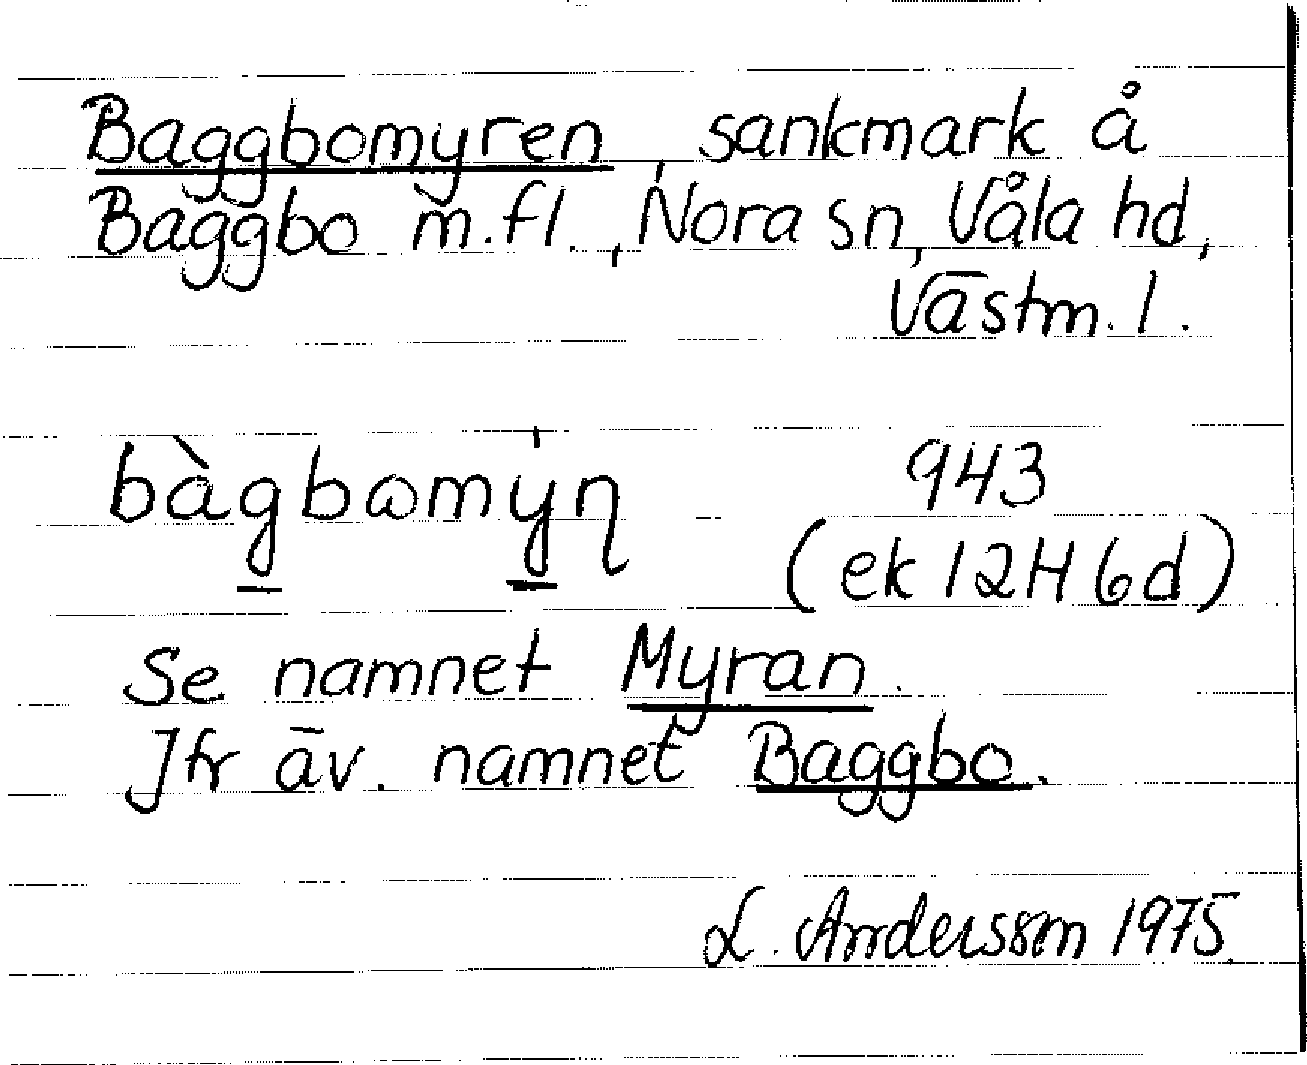 Baggbomyren, sankmark å
Baggbo m.fl., Nora sn, Våla hd,
Västm. l.
bàg̲bɷmy̲̍ɳ 943
(ek 12H 6d)
Se namnet Myran.
Jfr äv. namnet Baggbo.
L. Andersson 1975.